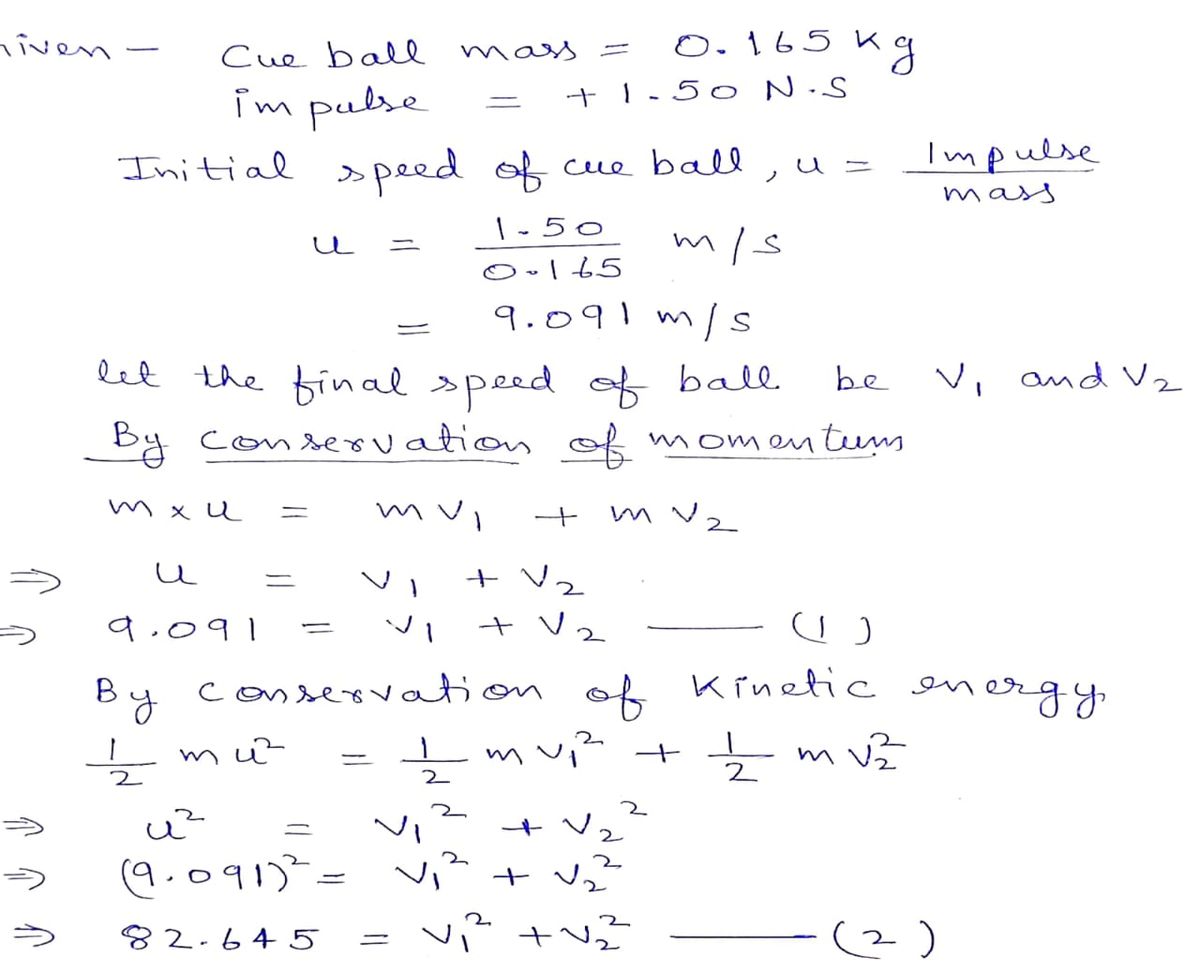 niven - Cue ball mass = 0.165 kg
impulse = + 1.50 N.S
Initial speed of cue ball, u = Impulse / mass
u = 1.50 / 0.165 m/s
= 9.091 m/s
let the final speed of ball be V₁ and V₂
By conservation of momentum
m × u = m V₁ + m V₂
⇒ u = V₁ + V₂
⇒ 9.091 = V₁ + V₂ —— (1)
By conservation of Kinetic energy,
1/2 m u² = 1/2 m V₁² + 1/2 m V₂²
⇒ u² = V₁² + V₂²
⇒ (9.091)² = V₁² + V₂²
⇒ 82.645 = V₁² + V₂² —— (2)